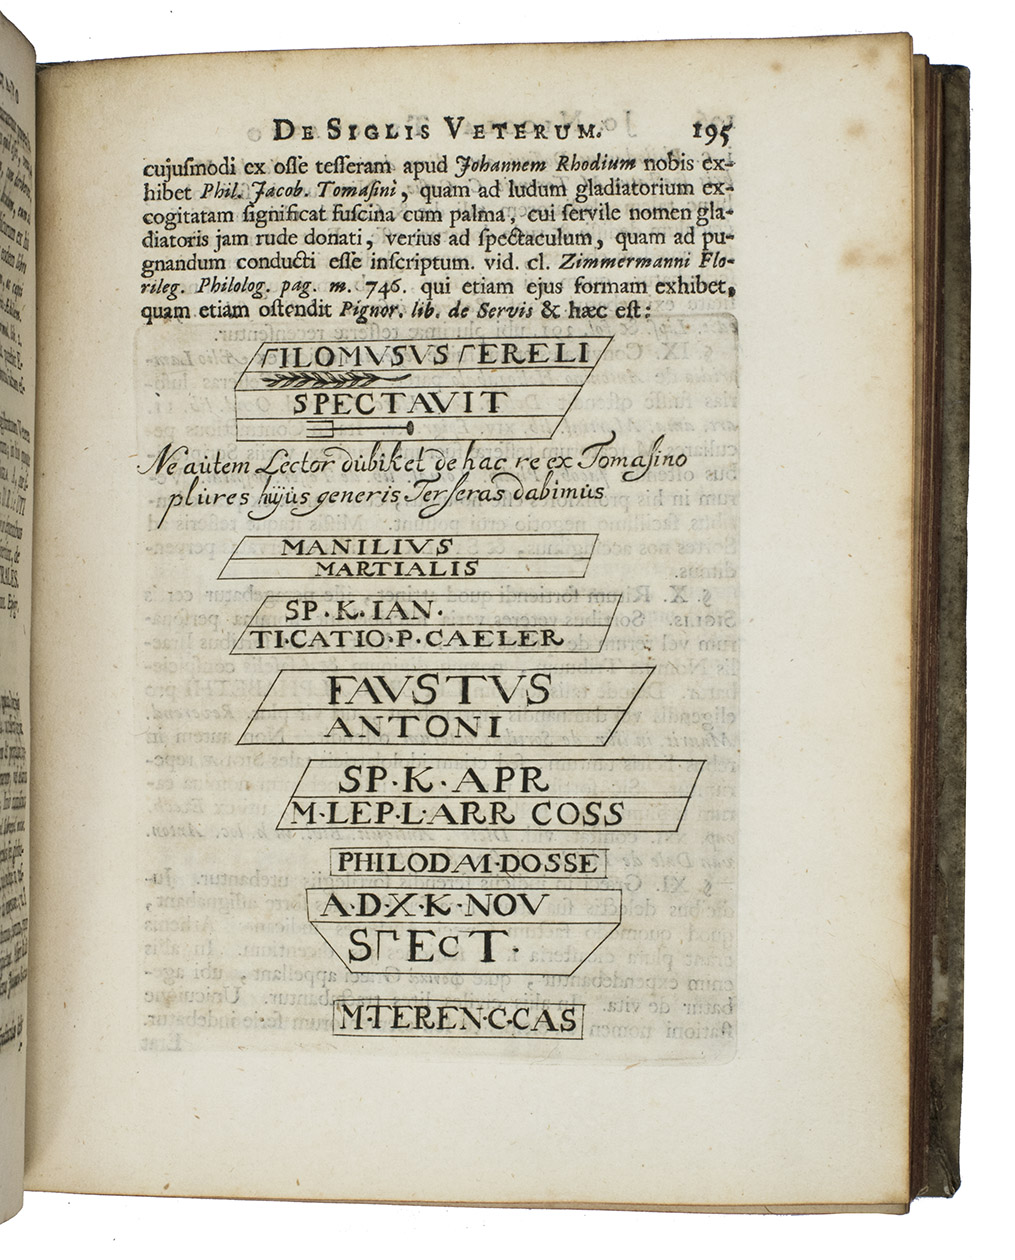 DE SIGLIS VETERUM. 195
cujuſmodi ex oſſe teſſeram apud Johannem Rhodium nobis ex-
hibet Phil. Jacob. Tomaſini, quam ad ludum gladiatorium ex-
cogitatam ſignificat fuſcina cum palma, cui ſervile nomen gla-
diatoris jam rude donati, verius ad ſpectaculum, quam ad pu-
gnandum conducti eſſe inſcriptum. vid. cl. Zimmermanni Flo-
rileg. Philolog. pag. m. 746. qui etiam ejus formam exhibet,
quam etiam oſtendit Pignor. lib. de Servis & hæc eſt:
ΓILOMVSVS ΓERELI
SPECTAVIT
Ne autem Lector dubitet de hac re ex Tomaſino
plures hujus generis Teſſeras dabimus
MANILIVS
MARTIALIS
SP·K·IAN·
TI·CATIO·P·CAELER
FAVSTVS
ANTONI
SP·K·APR
M·LEP·L·ARR COSS
PHILODAM·DOSSE
A·D·X·K·NOV
SΓECT·
M·TEREN·C·CAS